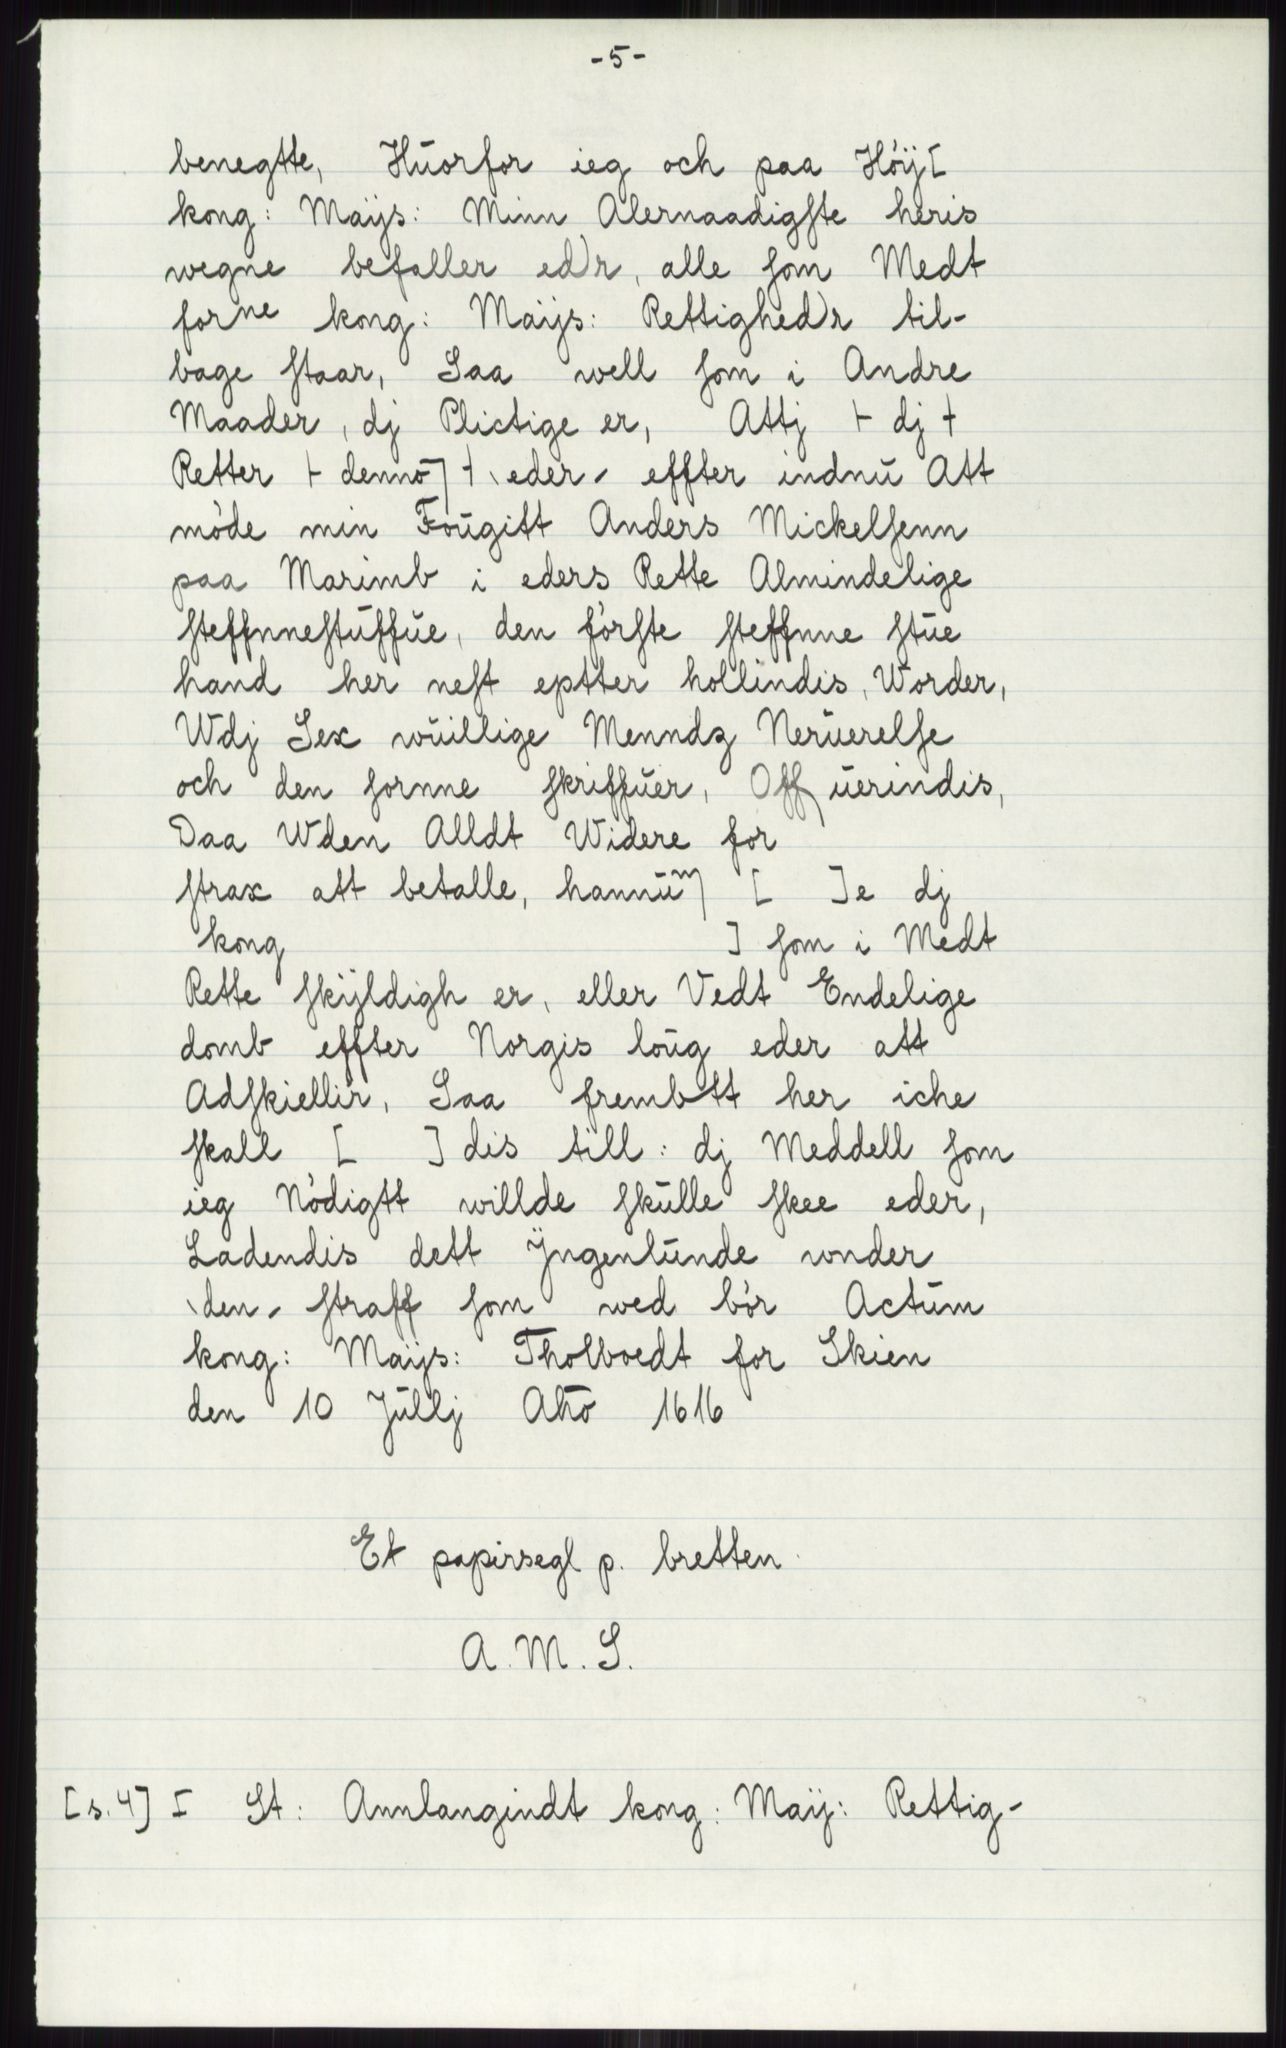 -5-
benegtte, Huorfor ieg och paa Høÿ[
kong: Maijs: Minn Alernaadigste heris
wegne befaller ed)r, alle som Medt
forne kong: Maijs: Rettighed)r til-
bage staar, Saa well som i Andre
Maader, dj Plictige er, Attj ⊢ dj ⊣
Retter ⊢ dennō] ⊣ \eder/ effter indnu Att
møde min Fougitt Anders Mickelsenn
paa Marimb i eders Rette Almindelige
steffnnestuffue, den første steffnne stue
hand her nest eptter hollindis, Worder,
Wdj Sex wuillige Menndz Neruerelse
och den sornne skriffuer, Off uerindis,
Daa Wden Alldt Widere for
strax att betalle, hannum] [ ]e dj
kong ] som i Medt
Rette skÿldigh er, eller Vedt Endelige
domb effter Norgis loug eder att
Adskiellir, Saa frembtt her iche
skall [ ] dis till: dj Meddell som
ieg Nødigtt willde skulle skee eder,
Ladendis dett Yngenlunde wnder
\den/ straff som wed bør Actum
kong: Maijs: Tholboedt for Skien
den 10 Jullj Ahō 1616
Et papirsegl p. bretten.
A. M. S.
[s. 4] [ St: Annlangindt kong: Maij: Rettig-